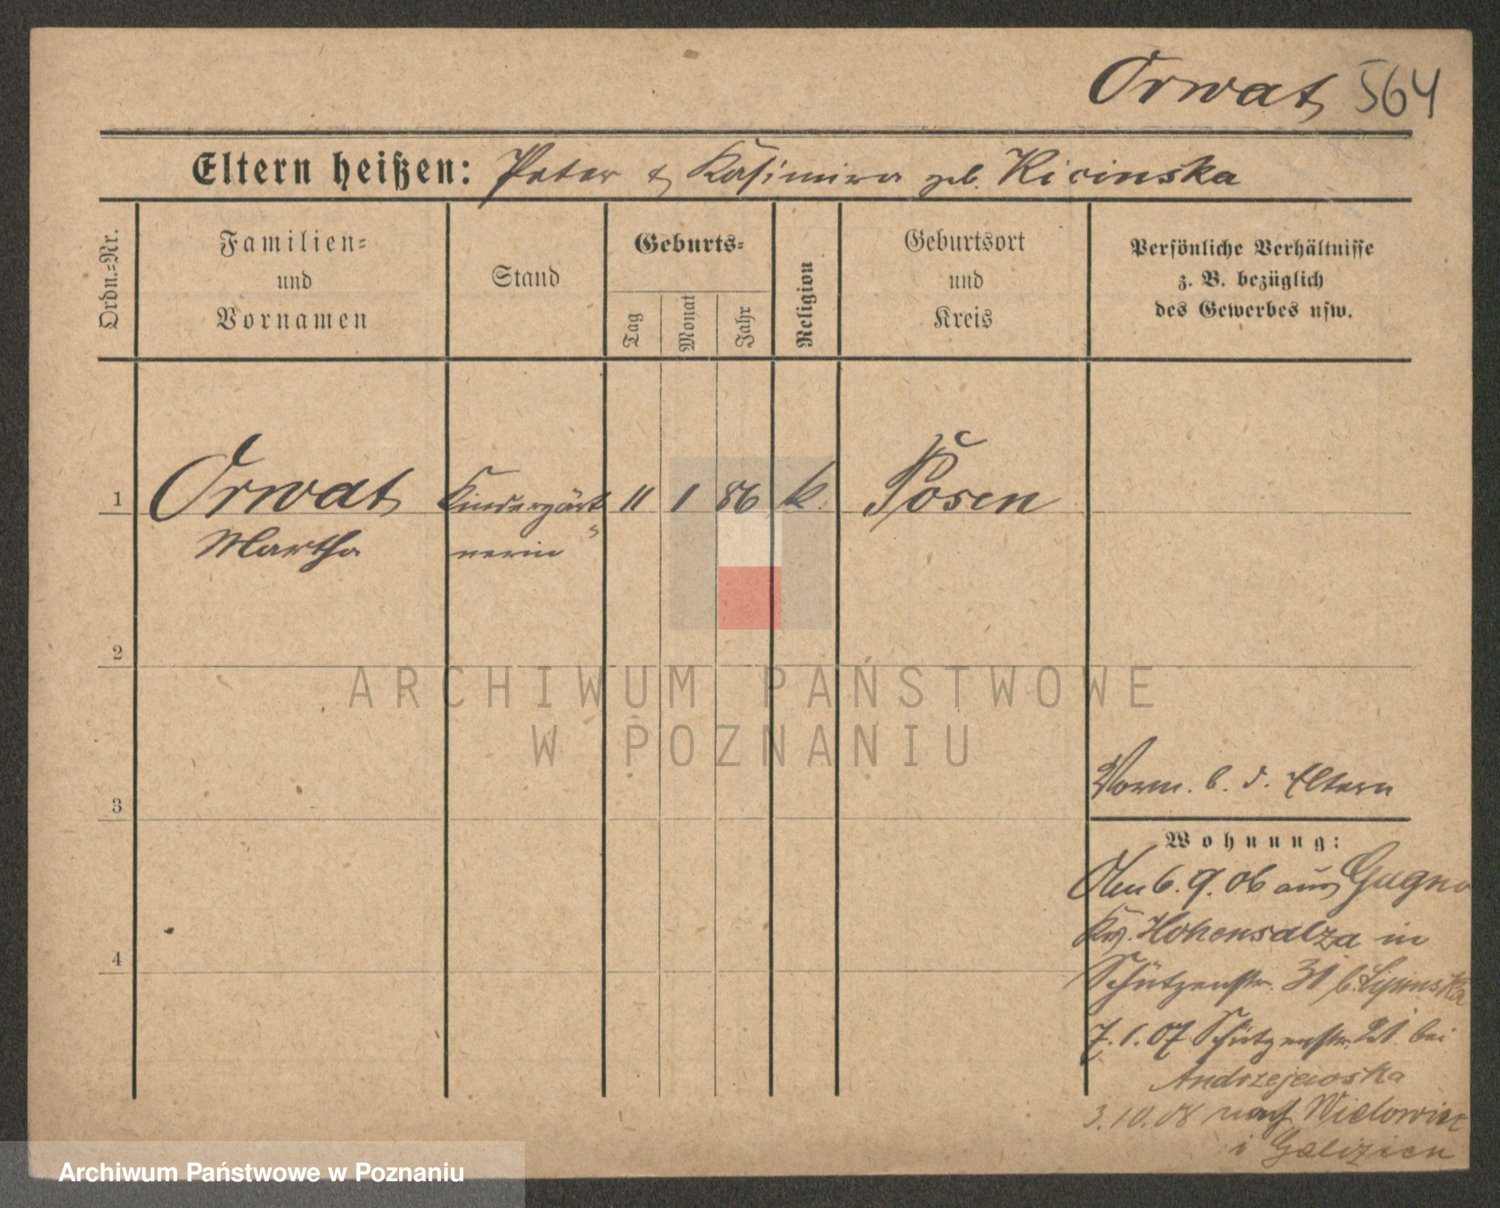 Orwat 564
Eltern heißen: Peter & Kasimira geb. Kicinska
Ordn.-Nr.
Familien-
und
Vornamen
Stand
Geburts-
Tag
Monat
Jahr
Religion
Geburtsort
und
Kreis
Persönliche Verhältnisse
z. B. bezüglich
des Gewerbes usw.
1 Orwat Kindergärt- 11 1 86 k. Posen
Martha nerin
2
ARCHIWUM PAŃSTWOWE
W POZNANIU
Vorm. b. d. Eltern
3
Wohnung:
Den 6. 9. 06 aus Gugno
Kr. Hohensalza in
4
Schützenstr. 31 b. Lipinska
7. 1. 07 Schützenstr. 21 bei
Andrzejewska
3. 10. 08 nach Wielowice
i Galizien
Archiwum Państwowe w Poznaniu